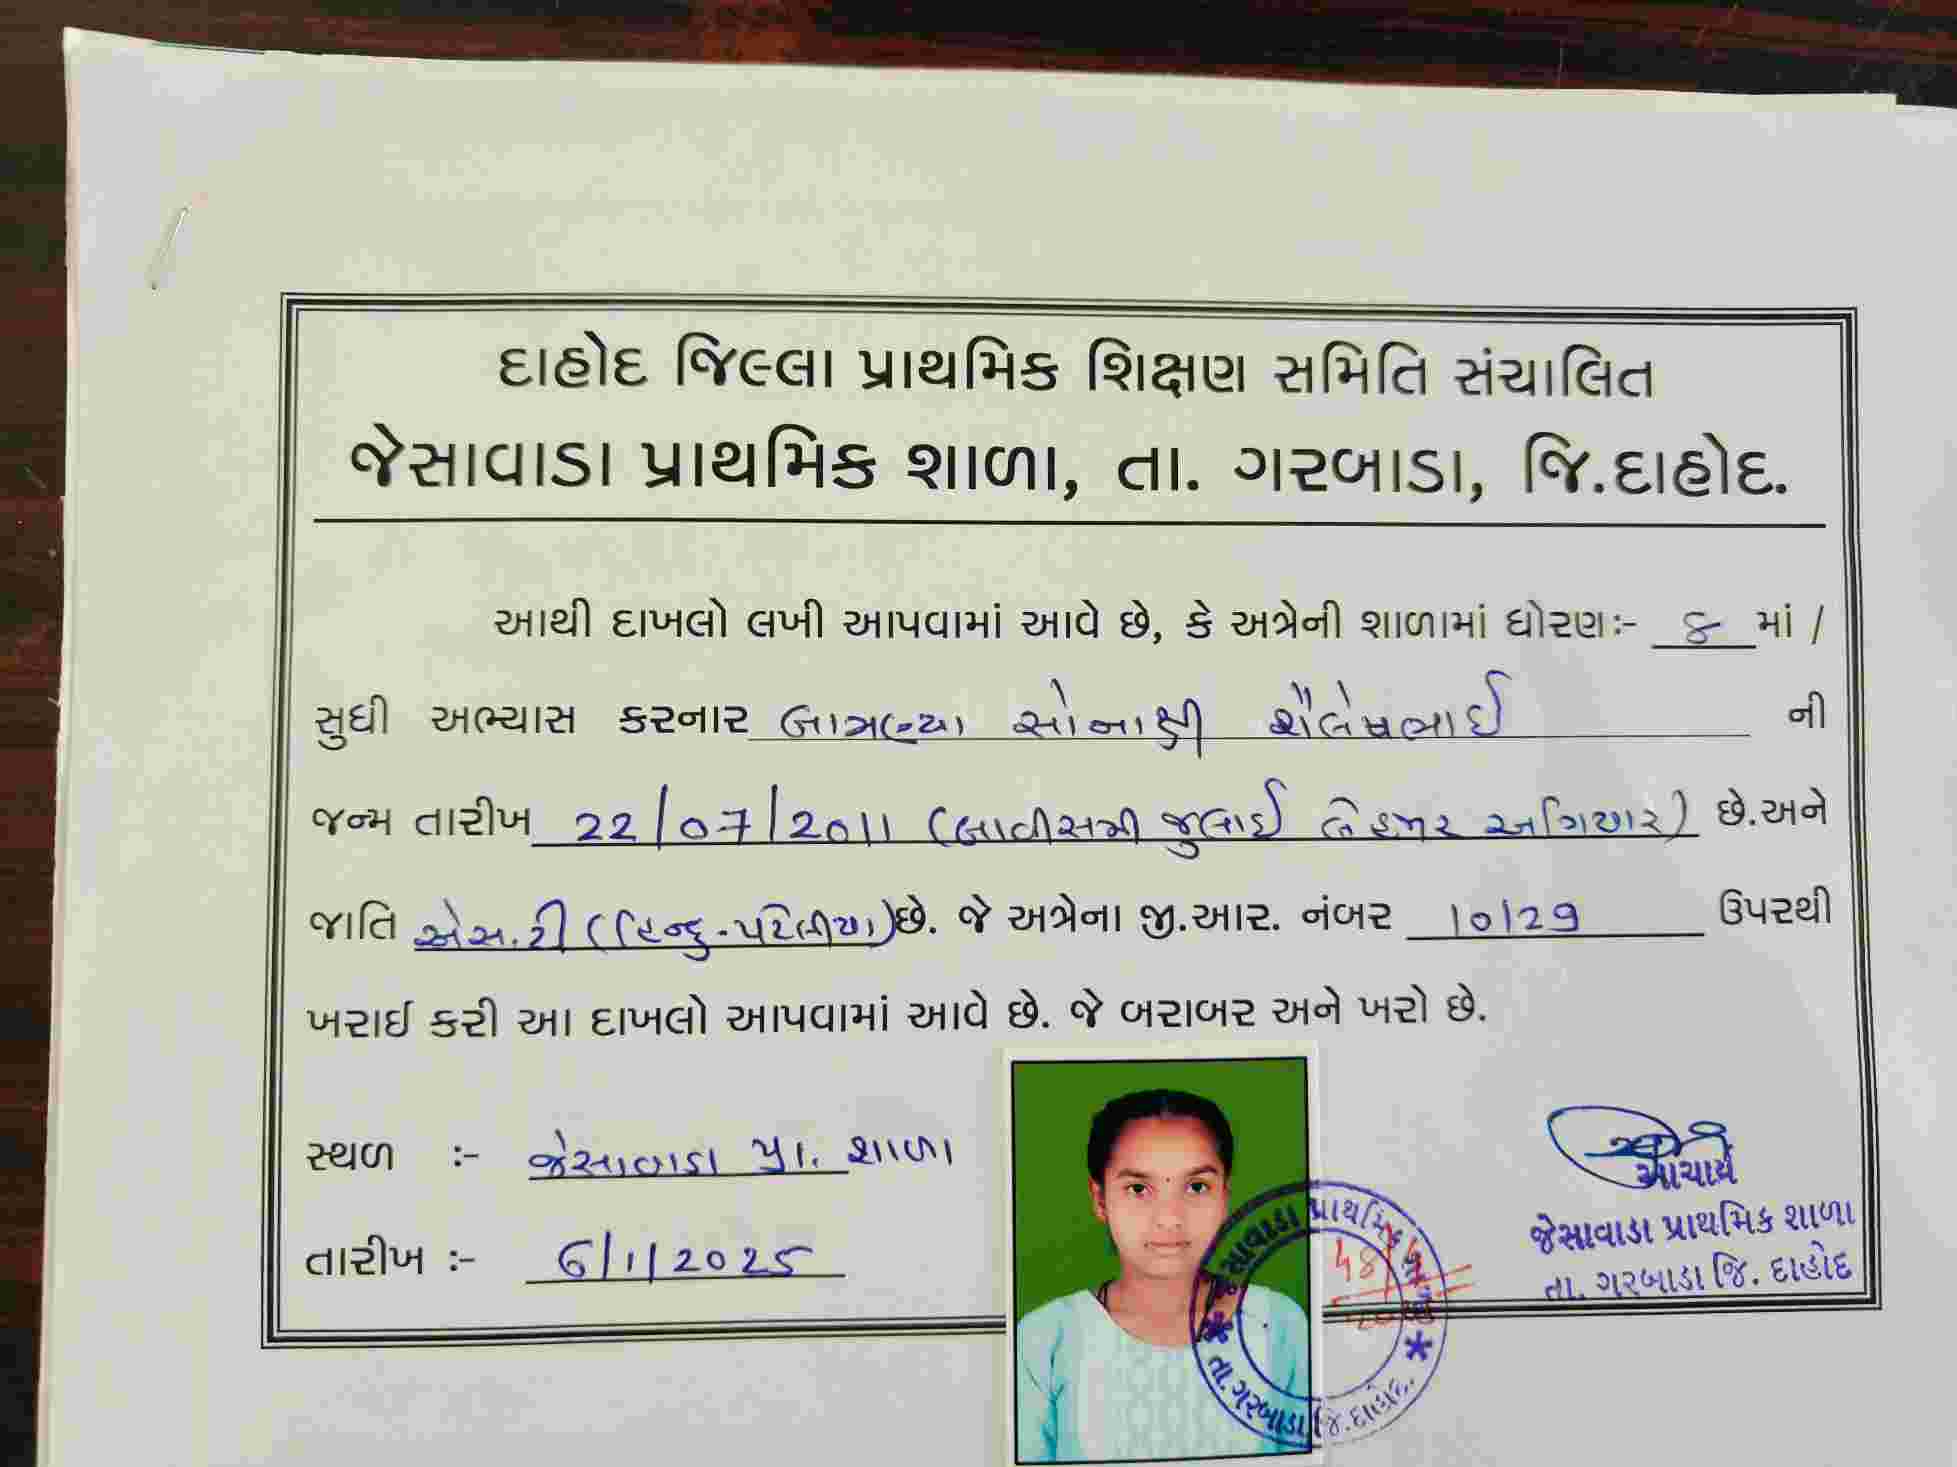 દાહોદ જિલ્લા પ્રાથમિક શિક્ષણ સમિતિ સંચાલિત
જેસાવાડા પ્રાથમિક શાળા, તા. ગરબાડા, જિ.દાહોદ.
આથી દાખલો લખી આપવામાં આવે છે, કે અત્રેની શાળામાં ધોરણઃ- ૪ માં /
સુધી અભ્યાસ કરનાર સોનાક્ષી શૈલેષભાઈ ની
જન્મ તારીખ 22/07/2011 (બાવીસમી જુલાઈ બે હજાર અગિયાર) છે.અને
જાતિ એસ.ટી (હિન્દુ-પટેલીયા) છે. જે અત્રેના જી.આર. નંબર 10129 ઉપરથી
ખરાઈ કરી આ દાખલો આપવામાં આવે છે. જે બરાબર અને ખરો છે.
સ્થળ :- જેસાવાડા પ્રા. શાળા
તારીખ :- 6/1/2025
આચાર્ય
જેસાવાડા પ્રાથમિક શાળા
તા. ગરબાડા જિ. દાહોદ
જેસાવાડા પ્રાથમિક શાળા
તા. ગરબાડા જિ. દાહોદ.